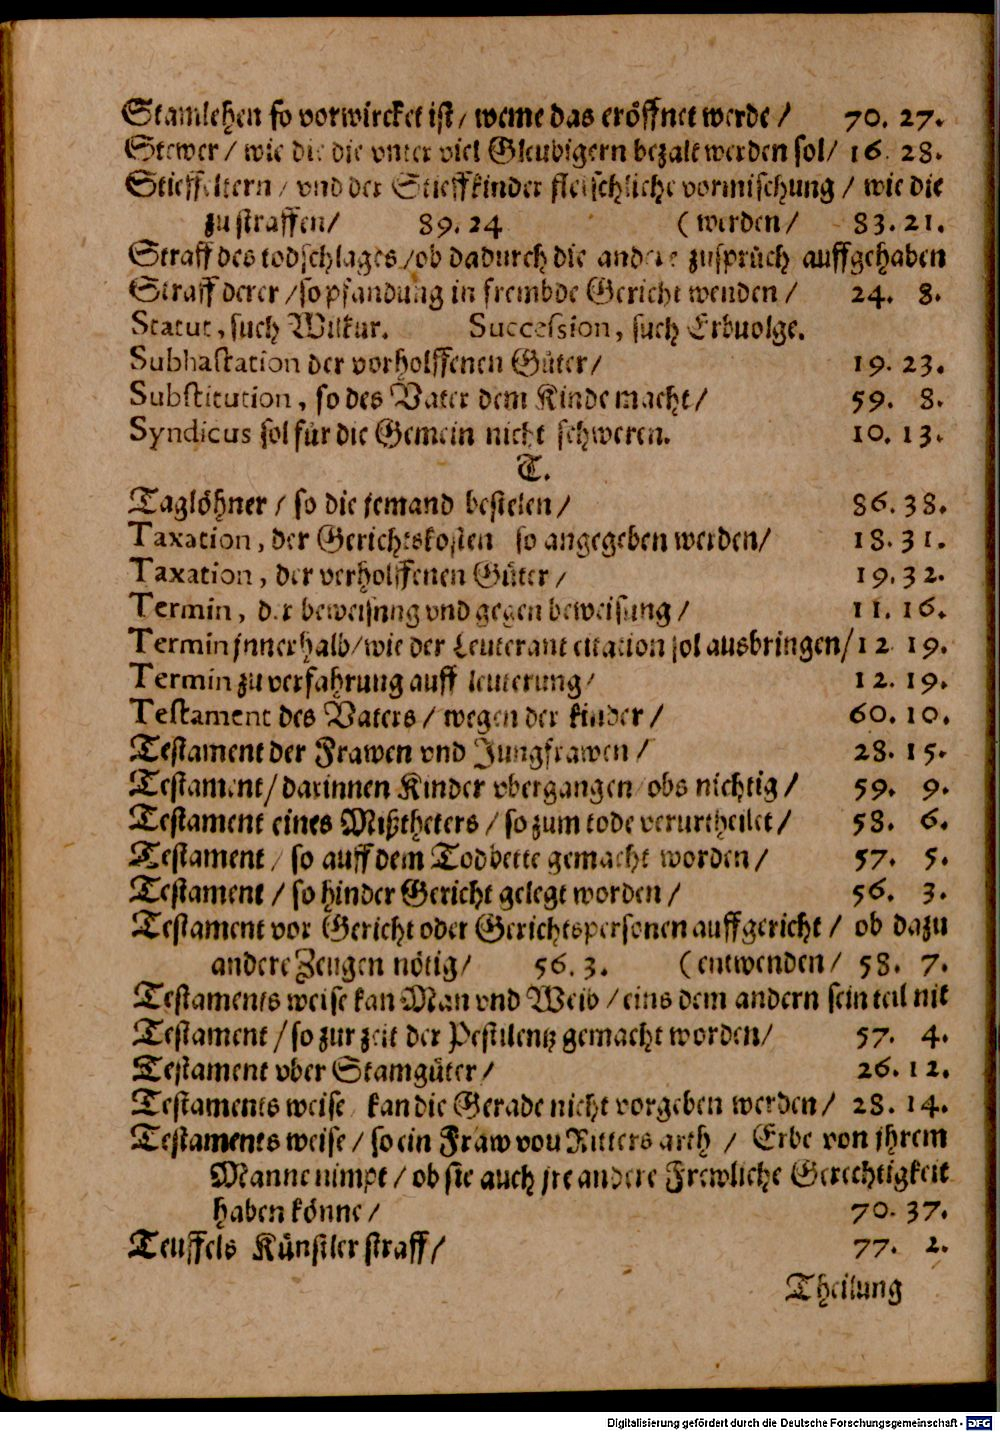 Stamlehen so vorwircket ist / weme das eröffnet werde / 70. 27.
Stewer / wie die die vnter viel Gleubigern bezalt werden sol / 16. 28.
Stieffeltern / vnd der Stieffkinder fleischliche vormischung / wie die
zu straffen / 89. 24 ( werden / 83. 21.
Straff des todschlages / ob dadurch die andere zusprüch auffgehaben
Straff derer / so pfandung in frembde Gericht wenden / 24. 8.
Statut, such Wilkur. Succession, such Erbuolge.
Subhastation der vorholffenen Güter / 19. 23.
Substitution, so des Vater dem Kinde macht / 59. 8.
Syndicus sol für die Gemein nicht schweren. 10. 13.
T.
Taglöhner / so die jemand bestelen / 86. 38.
Taxation, der Gerichtskosten so angegeben werden / 18. 31.
Taxation, der verholffenen Güter / 19. 32.
Termin, der beweisung vnd gegen beweisung / 11. 16.
Termin jnnerhalb / wie der Leuterant citation sol ausbringen / 12 19.
Termin zu verfahrung auff leuterung / 12. 19.
Testament des Vaters / wegen der kinder / 60. 10.
Testament der Frawen vnd Jungfrawen / 28. 15.
Testament / darinnen Kinder vbergangen / obs nichtig / 59. 9.
Testament eines Mißtheters / so zum tode verurtheilet / 58. 6.
Testament / so auff dem Todbette gemacht worden / 57. 5.
Testament / so hinder Gericht gelegt worden / 56. 3.
Testament vor Gericht oder Gerichtspersonen auffgericht / ob dazu
andere Zeugen nötig / 56. 3. ( entwenden / 58. 7.
Testaments weise kan Man vnd Weib / eins dem andern sein teil nit
Testament / so zur zeit der Pestilentz gemacht worden / 57. 4.
Testament vber Stamgüter / 26. 12.
Testaments weise / kan die Gerade nicht vorgeben werden / 28. 14.
Testaments weise / so ein Fraw von Ritters arth / Erbe von jhrem
Manne nimpt / ob sie auch jre andere Frewliche Gerechtigkeit
haben könne / 70. 37.
Teuffels Künstler straff / 77. 2.
Theilung
Digitalisierung gefördert durch die Deutsche Forschungsgemeinschaft - DFG